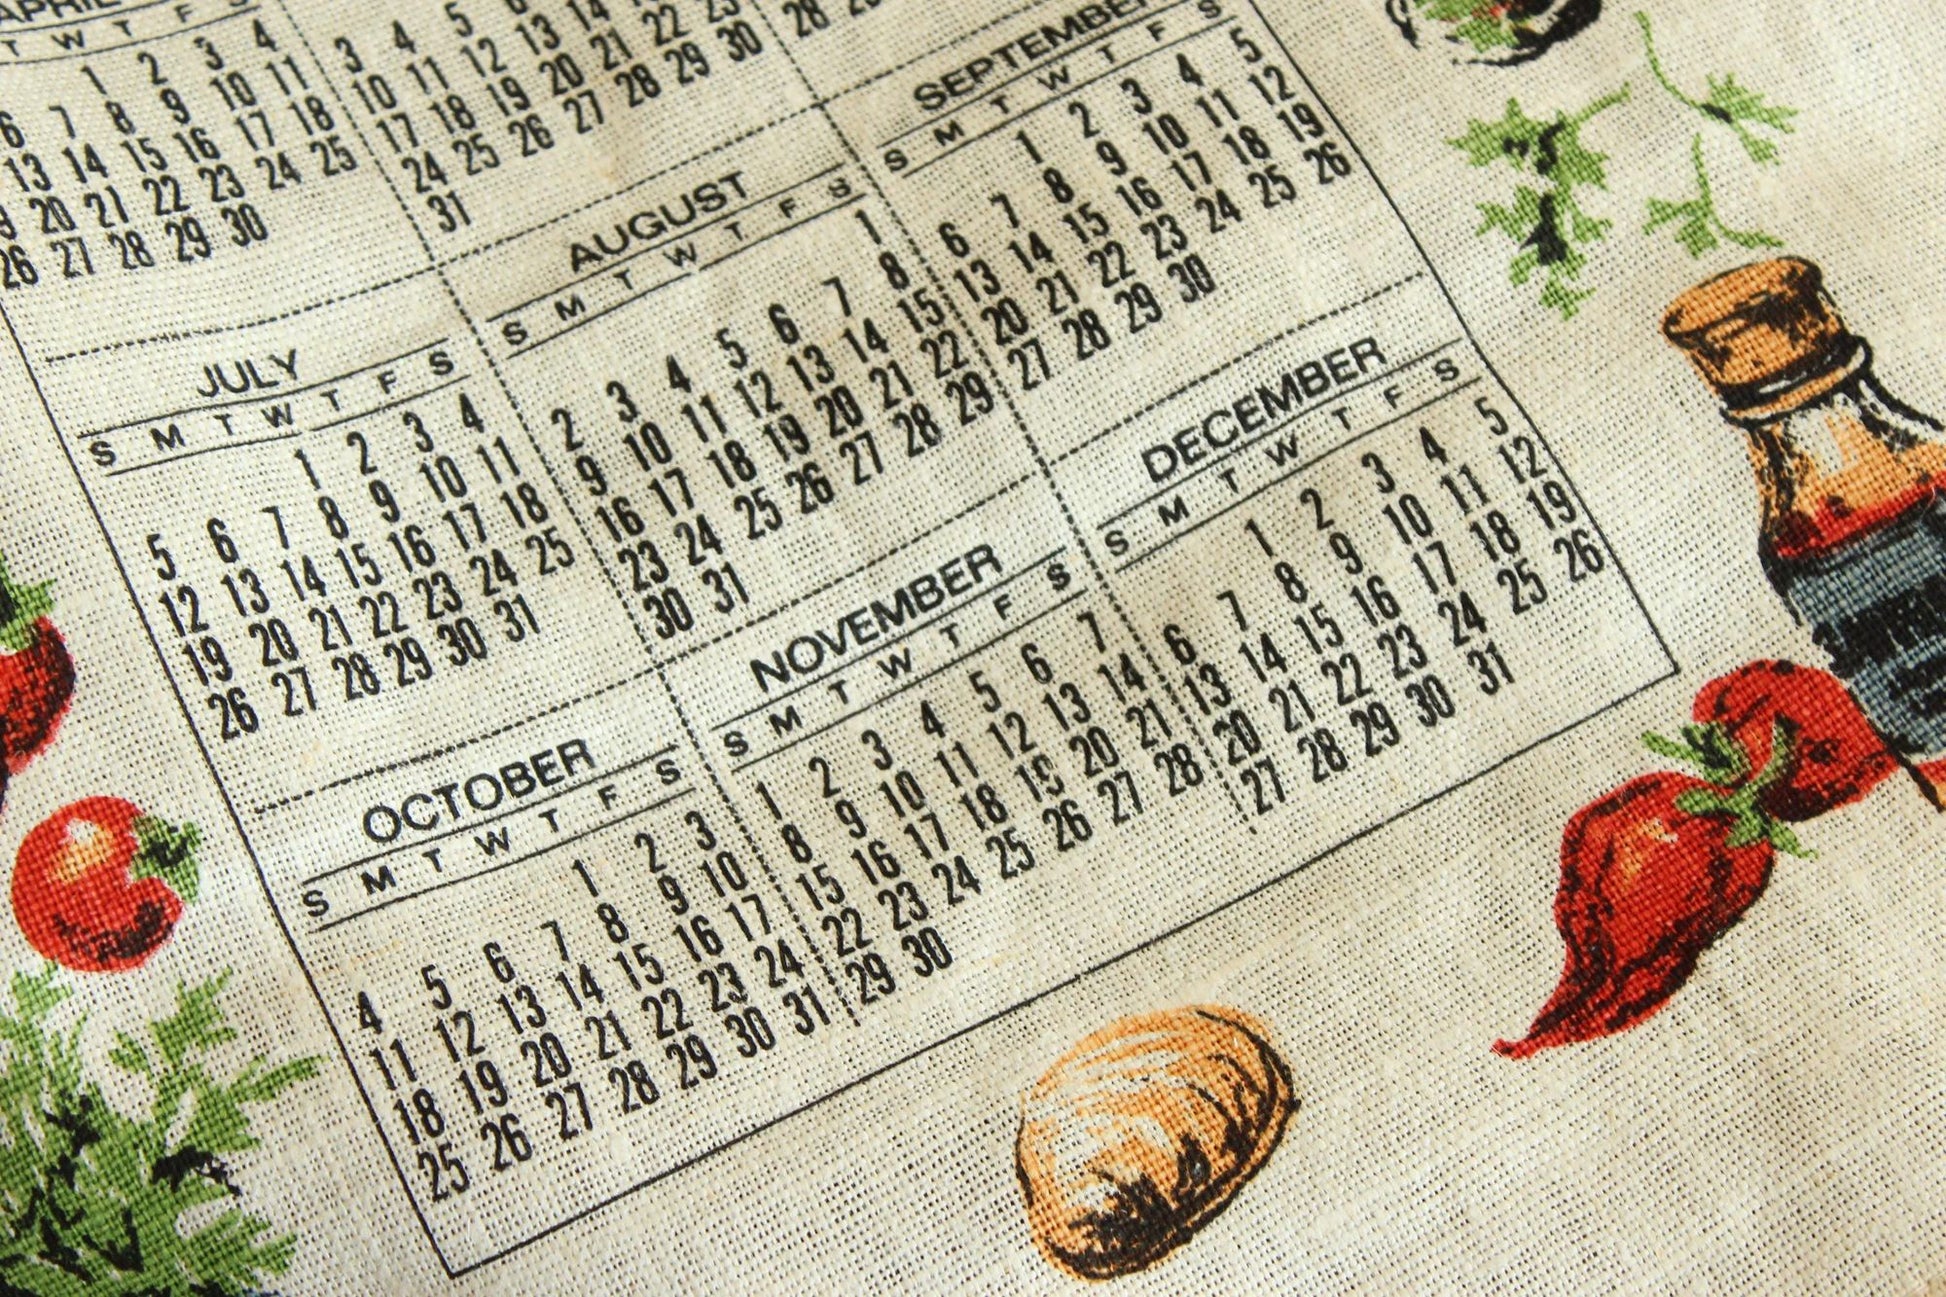 APRIL
T W T F S
1 2 3 4
6 7 8 9 10 11
13 14 15 16 17 18
20 21 22 23 24 25
26 27 28 29 30
3 4 5 6
10 11 12 13 14
17 18 19 20 21 22 23
24 25 26 27 28 29 30
31
28
SEPTEMBER
S M T W T F S
1 2 3 4 5
6 7 8 9 10 11 12
13 14 15 16 17 18 19
20 21 22 23 24 25 26
27 28 29 30
JULY
S M T W T F S
1 2 3 4
5 6 7 8 9 10 11
12 13 14 15 16 17 18
19 20 21 22 23 24 25
26 27 28 29 30 31
AUGUST
S M T W T F S
1
2 3 4 5 6 7 8
9 10 11 12 13 14 15
16 17 18 19 20 21 22
23 24 25 26 27 28 29
30 31
OCTOBER
S M T W T F S
1 2 3
4 5 6 7 8 9 10
11 12 13 14 15 16 17
18 19 20 21 22 23 24
25 26 27 28 29 30 31
NOVEMBER
S M T W T F S
1 2 3 4 5 6 7
8 9 10 11 12 13 14
15 16 17 18 19 20 21
22 23 24 25 26 27 28
29 30
DECEMBER
S M T W T F S
1 2 3 4 5
6 7 8 9 10 11 12
13 14 15 16 17 18 19
20 21 22 23 24 25 26
27 28 29 30 31